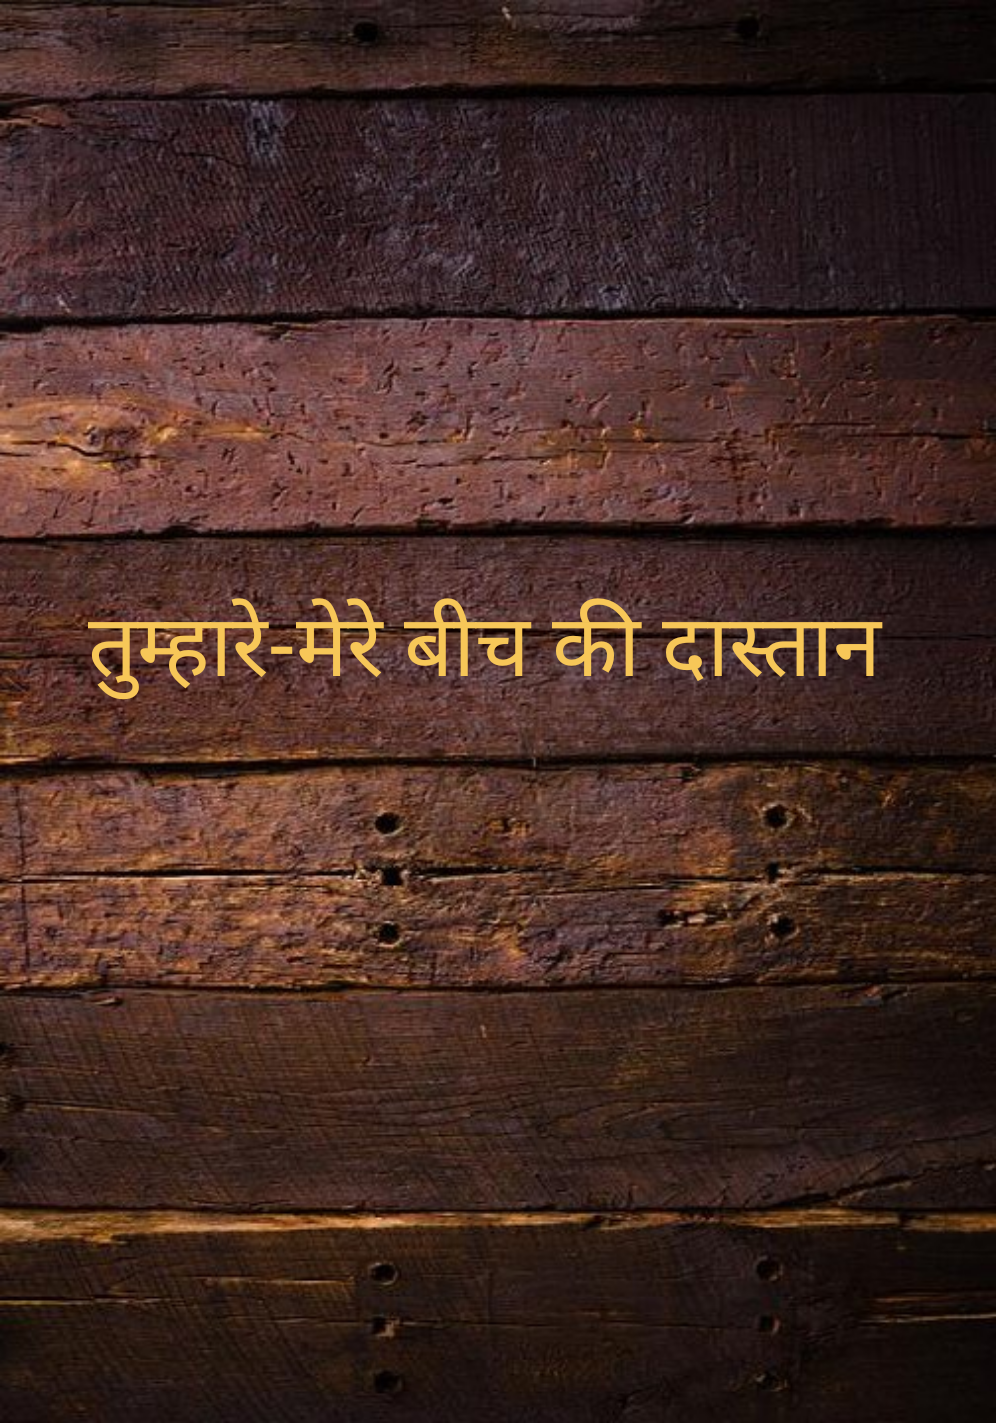 तुम्हारे-मेरे बीच की दास्तान